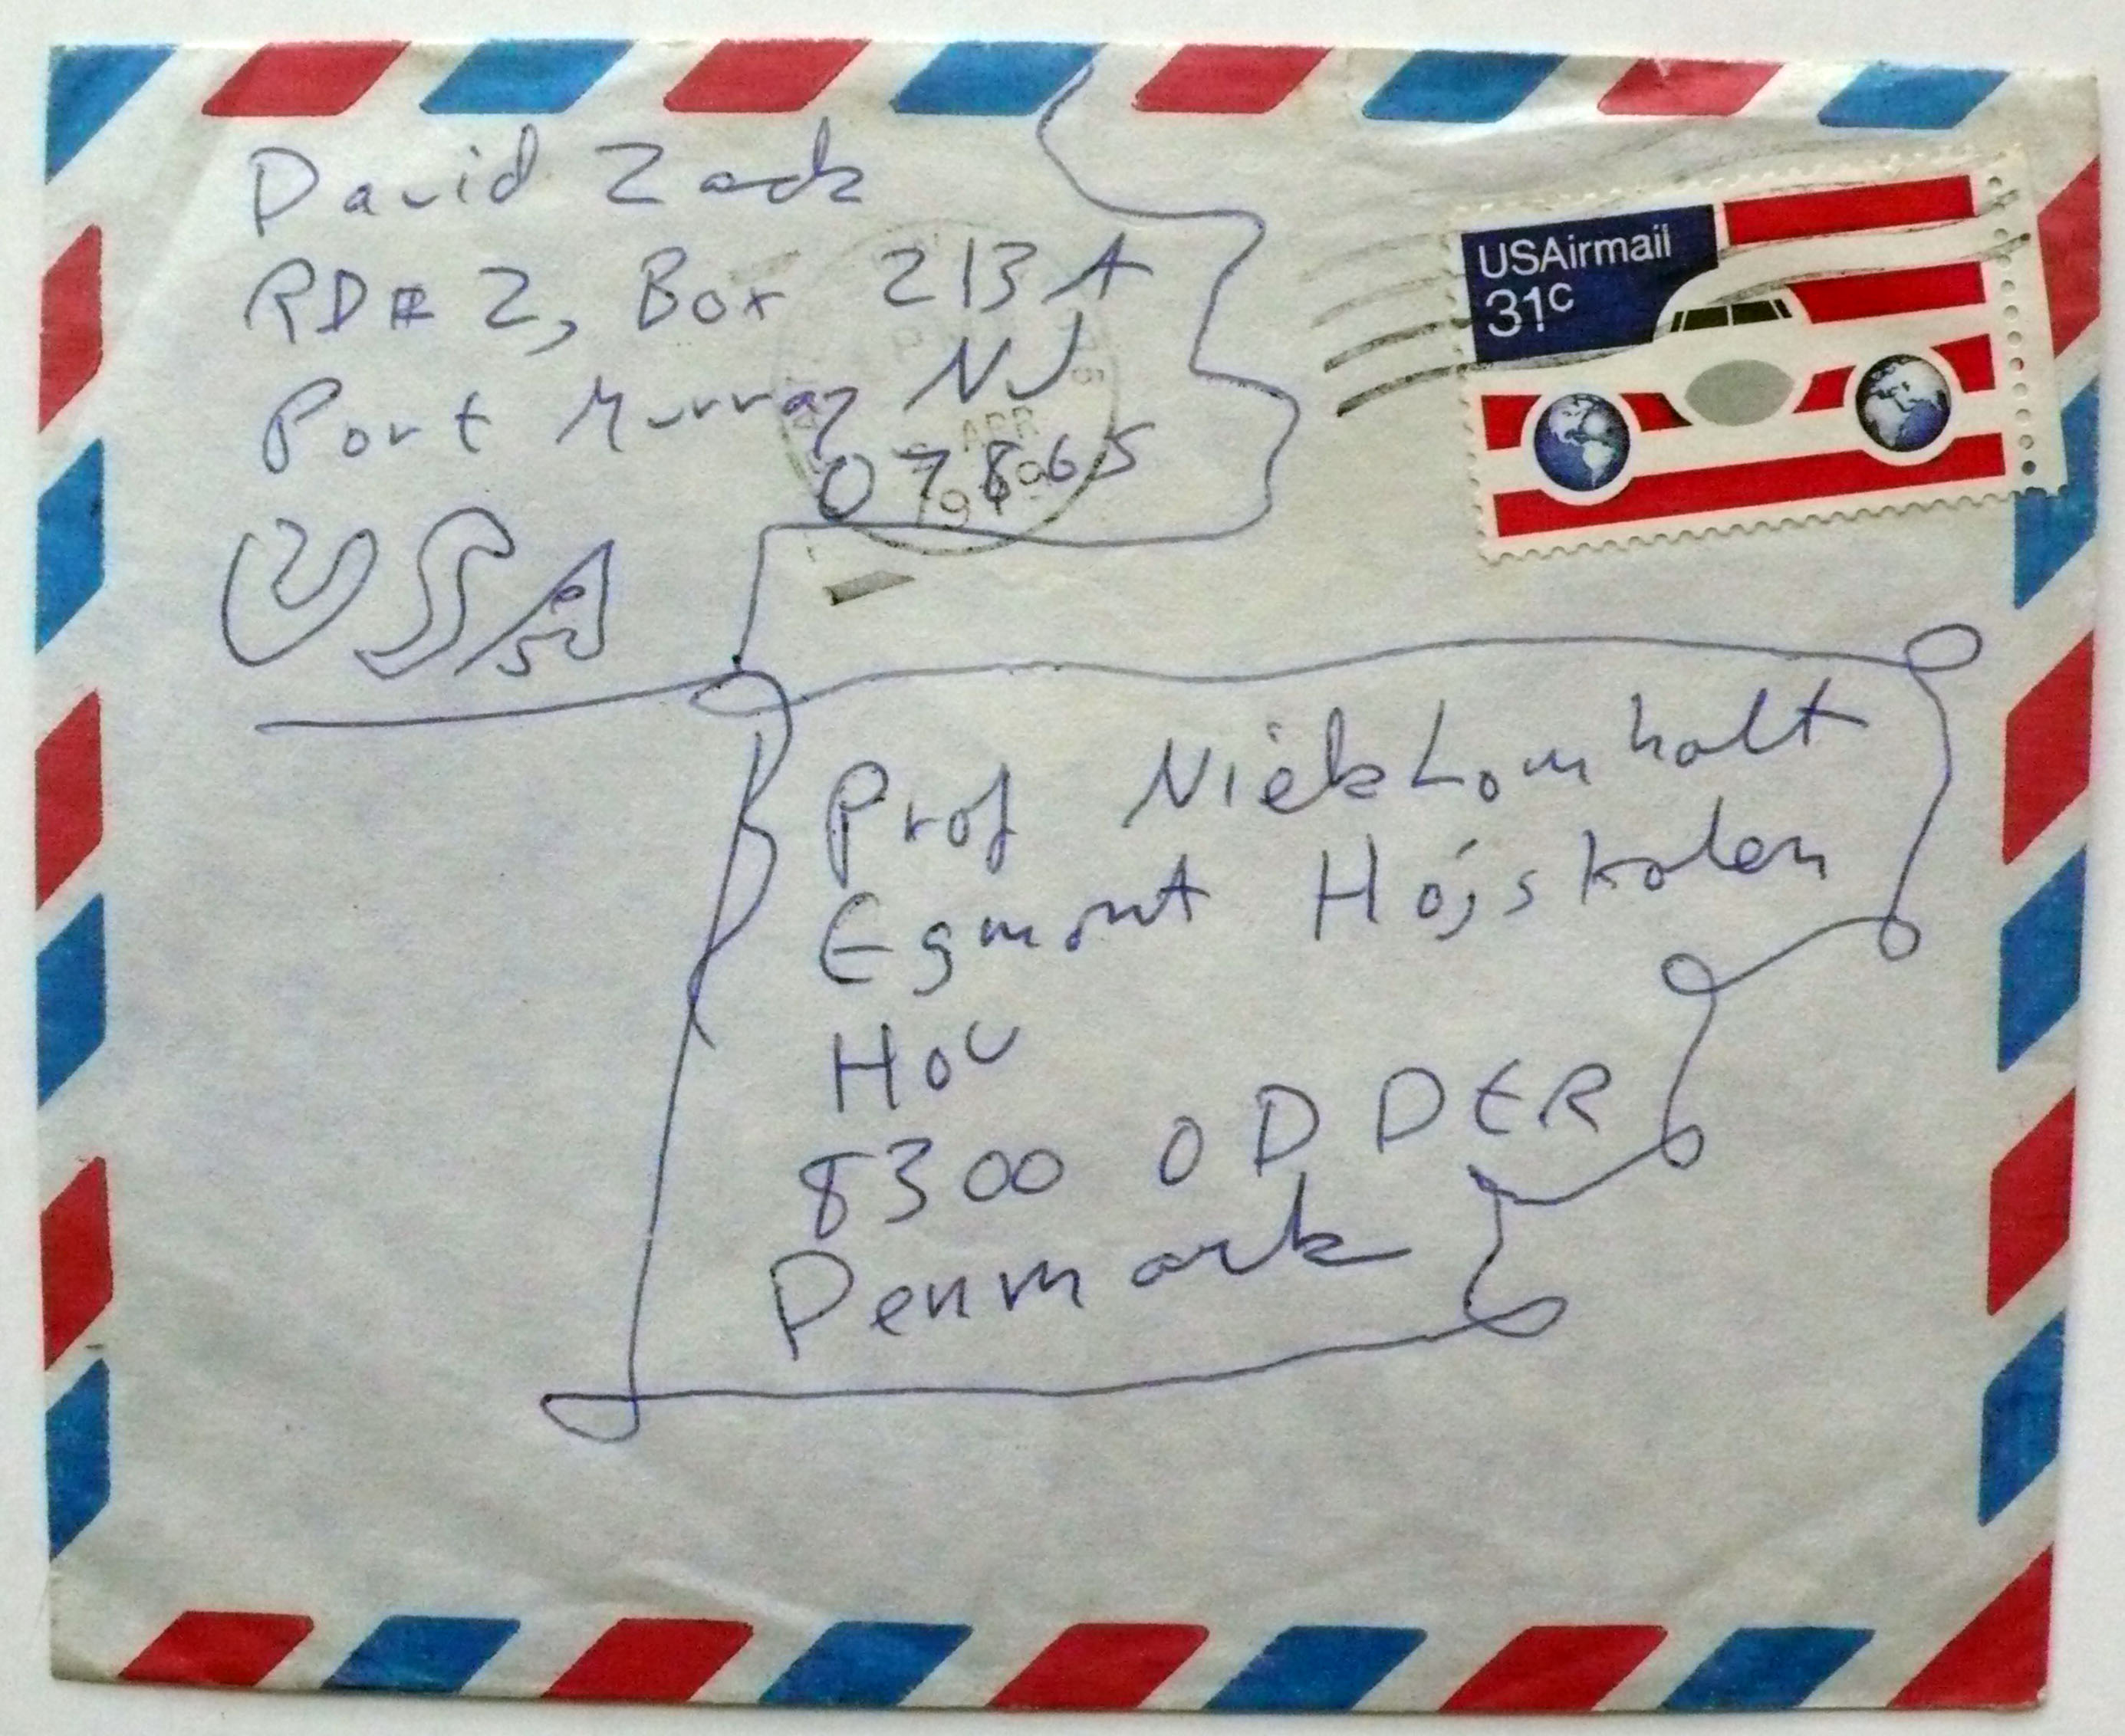 David Zack
RD# 2, Box 213A
Port Murray NJ
07865
USA
USAirmail
31c
APR
1979
Prof Niels Lomholt
Egmont Hójskolen
HOU
8300 ODDER
Denmark